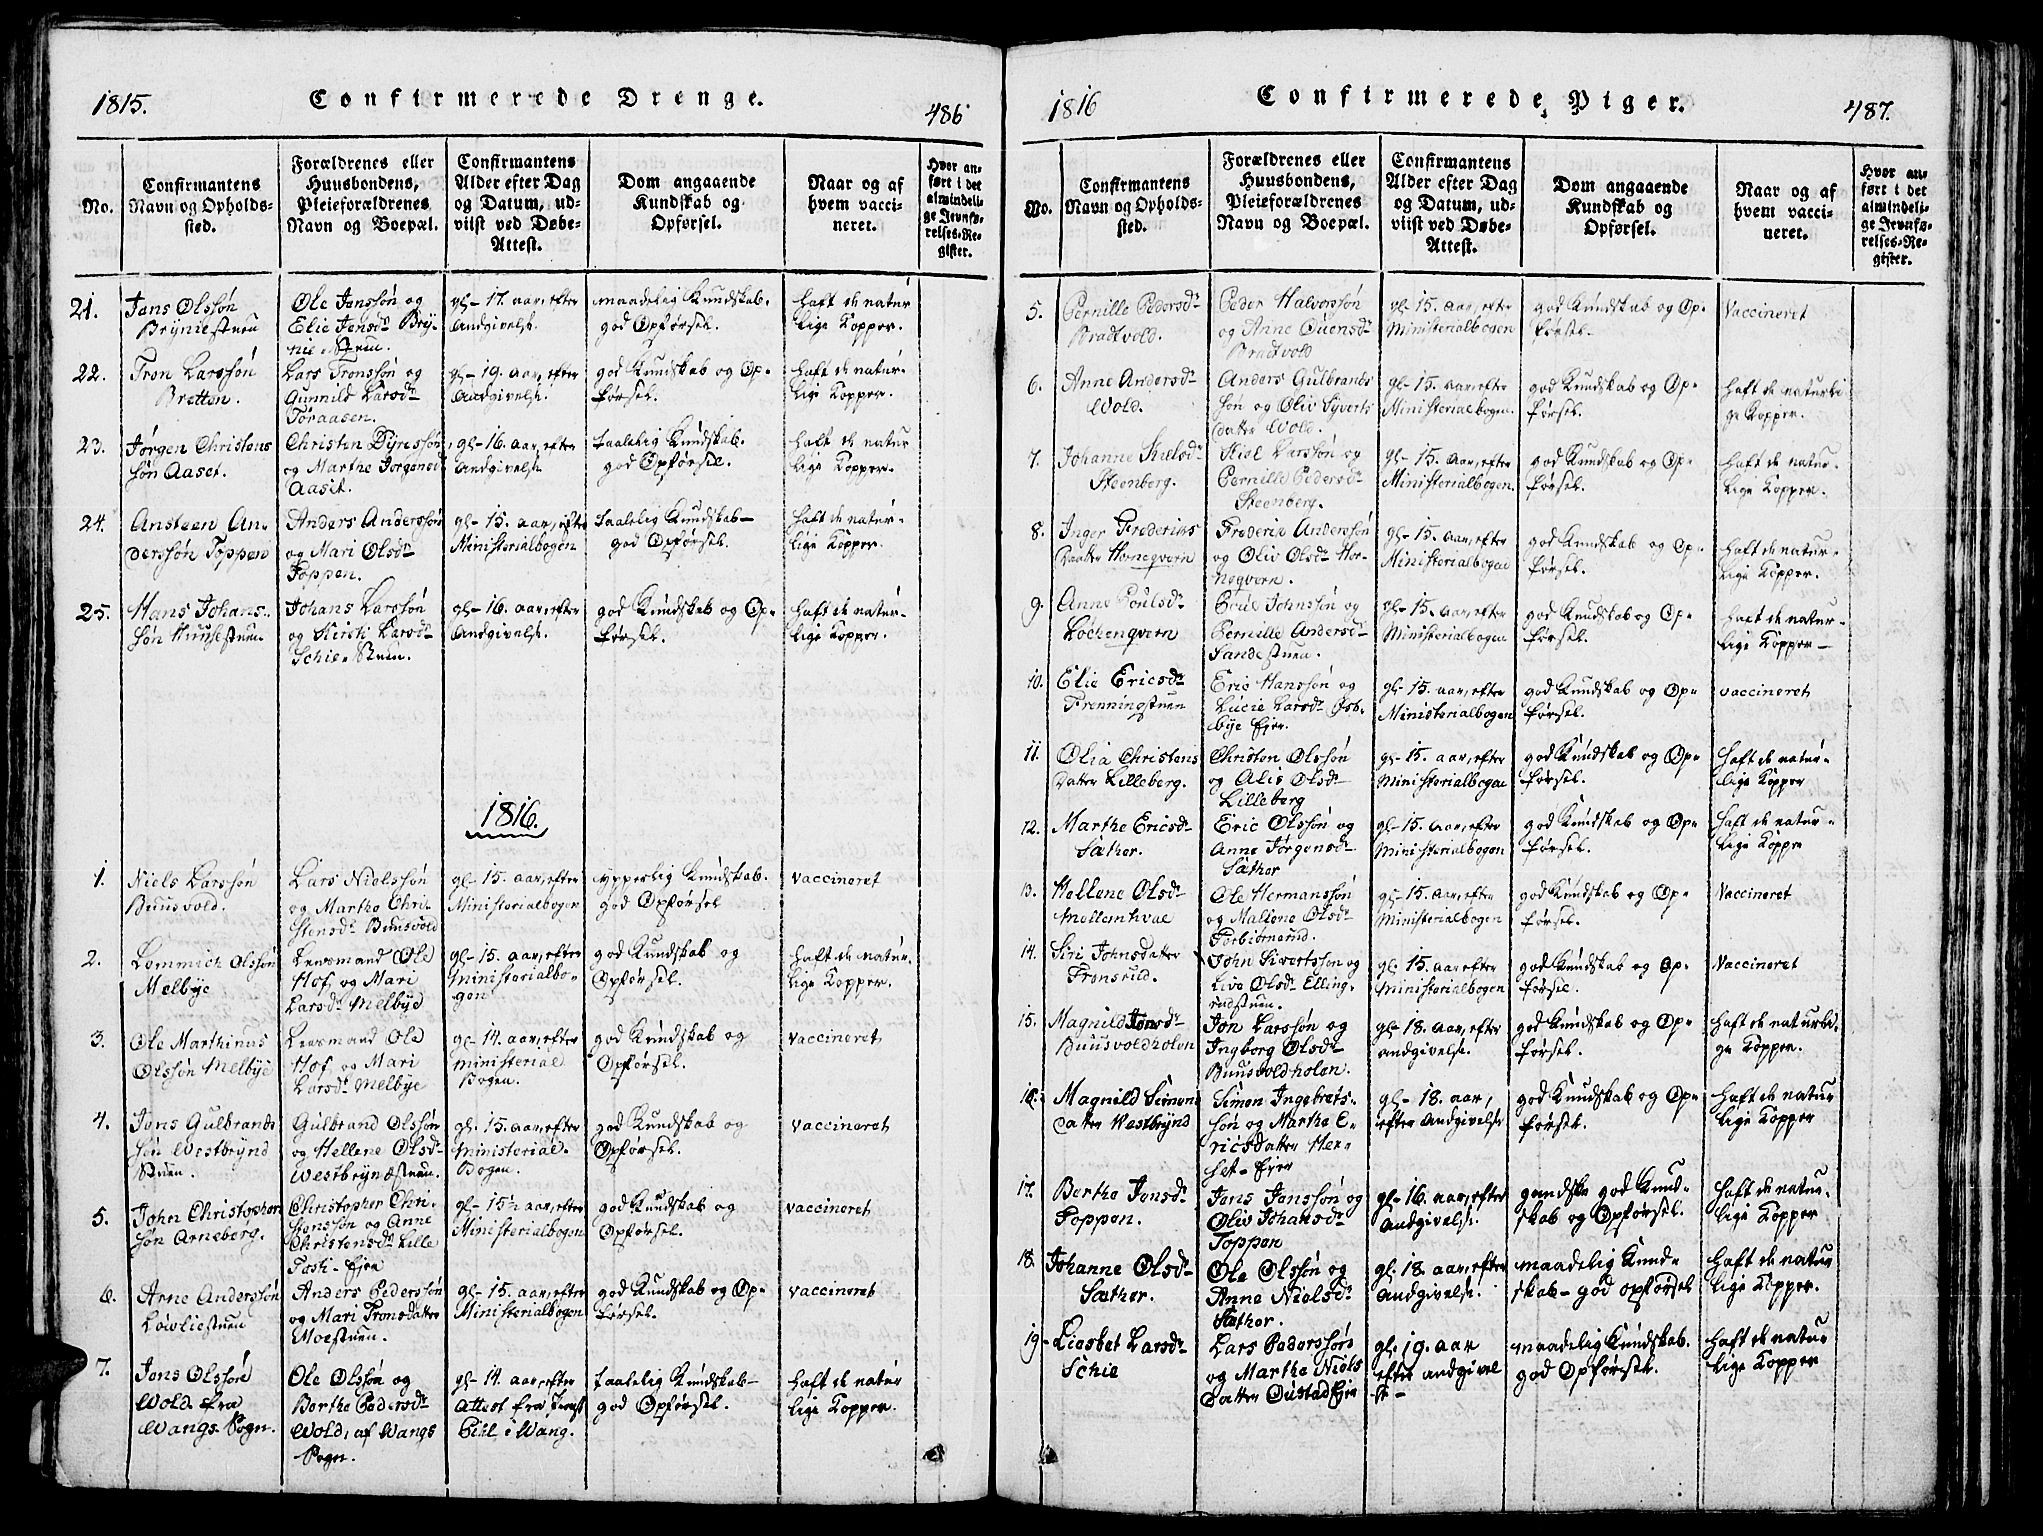 1815.
Confirmerede Drenge.
486
No.
Confirmantens
Navn og Opholds-
sted.
Forældrenes eller
Huusbondens,
Pleieforældrenes
Navn og Boepæl.
Confirmantens
Alder efter Dag
og Datum, ud-
viist ved Døbe-
Attest.
Dom angaaende
Kundskab og
Opførsel.
Naar og af
hvem vacci-
neret.
Hvor an-
ført i det
almindeli-
ge Jevnfø-
relses-Re-
gister.
21.
Jans Olssøn
Brÿniestuen
Ole Janssøn og
Elie Jensdr Brÿ-
nie-Stuen.
gl- 17. aar, efter
Andgivelse.
maadelig Kundskab.
god Opførsel.
haft de natur
lige Kopper.
22.
Tron Larssøn
Bretten.
Lars Tronssøn og
Gunnild Larsdr
Toraasen.
gl- 19. aar, efter
Andgivelse.
god Kundskab og Op-
førsel.
haft de natur-
lige Kopper.
23.
Jørgen Christens
søn Aaset.
Christen Dÿressøn
og Marthe Jørgensdr
Aaset.
gl- 16. aar, efter
Andgivelse
taalelig Kundskab.
god Opførsel.
haft de natur
lige Kopper.
24.
Ansteen An-
derssøn Toppen
Anders Anderssøn
og Mari Olsdr
Toppen.
gl- 15. aar, efter
Ministerialbogen
taalelig Kundskab-
god Opførsel.
haft de natur-
lige Kopper.
25.
Hans Johans-
søn Huusestuen.
Johans Larssøn
og Kirsti Larsdr
Schie-Stuen.
gl- 16. aar, efter
Andgivelse.
god Kundskab og Op-
førsel.
haft de natur-
lige Kopper.
1816.
1.
Niels Larssøn
Buusvold.
Lars Nielssøn
og Marthe Chri-
stensdr Buusvold
gl- 15. aar, efter
Ministerialbogen
ypperlig Kundskab.
god Opførsel
vaccineret
2.
Lemmich Olssøn
Melbye
Lensmand Ole
Hof, og Mari
Larsdr Melbye
gl- 15. aar, efter
ministerialbo-
gen
god Kundskab og
Opførsel.
haft de natur-
lige Kopper.
3.
Ole Marthinus
Olssøn Melbye
Lensmand Ole
Hof, og Mari
Larsdr Melbye
gl- 14. aar, efter
ministerial
Bogen.
god Kundskab og
Opførsel.
vaccineret
4.
Jens Gulbrands
søn Westbrÿnd
Stuen.
Gulbrand Olssøn
og Hellene Olsdr
Westbrÿnestuen.
gl. 15. aar, efter
Ministerial.
Bogen.
god Kundskab og
Opførsel.
vaccineret
5.
John Christopher
søn Arneberg.
Christopher Chri-
stenssøn og Anne
Christensdr Lille
Tosti-Ejen
gl- 15½ aar, efter
Ministerialbogen
god Kundskab og
Opførsel.
vaccineret
6.
Arne Anderssøn
Lowliestuen
Anders Pederssøn
og Mari Tronsdatter
Moestuen.
gl- 15. aar, efter
Ministerialbogen
god Kundskab og Op-
førsel.
vaccineret
7.
Jens Olssøn
Wold fra
Wangs Sogn.
Ole Olssøn og
Berthe Pedersdr
Wold, af Wangs
Sogn.
gl- 14. aar, efter
Attest fra Præst
Pihl i Wang.
taalelig Kundskab-
god Opførsel.
haft de natur
lige Kopper.
1816
Confirmerede Piger.
487.
No.
Confirmantens
Navn og Opholds-
sted.
Forældrenes eller
Huusbondens,
Pleieforældrenes
Navn og Boepæl.
Confirmantens
Alder efter Dag
og Datum, ud-
viist ved Døbe-
Attest.
Dom angaaende
Kundskab og
Opførsel.
Naar og af
hvem vacci-
neret.
Hvor an-
ført i det
almindeli-
ge Jevnfø-
relses-Re-
gister.
5.
Pernille Pedersdr
Bradtvold.
Peder Halverssøn
og Anne Evensdr
Bradtvold
gl- 15. aar, efter
Ministerialbogen
god Kundskab og Op-
førsel.
Vaccineret
6.
Anne Andersdr
Wold.
Anders Gulbrands
søn og Oliv Syverts
datter Wold.
gl- 15. aar, efter
Ministerialbogen.
god Kundskab og Op-
førsel.
haft de naturli
ge Kopper.
7.
Johanne Kielsdr
Steenberg.
Kiel Larssøn og
Pernille Pedersdr
Steenberg.
gl- 15. aar, efter
Ministerialbogen.
god Kundskab og Op-
førsel.
haft de natur-
lige Kopper.
8.
Inger Frederiks
Datter Hornqvern
Frederik Anderssøn
og Oliv Olsdr Hor-
neqvern.
gl- 15. aar, efter
Ministerialbogen
god Kundskab og Op-
førsel.
haft de natur-
lige Kopper.
9.
Anne Poulsdr
Løckenqvern
Poul Johnssøn og
Pernille Andersdr
Sandestuen.
gl- 15. aar, efter
Ministerialbogen
god Kundskab og Op-
førsel.
haft de natur-
lige Kopper-
10.
Elie Ericsdr
Frenningstuen
Eric Hanssøn og
Lucie Larsdr Øsb-
bye Ejer.
gl- 15. aar, efter
Ministerialbogen
god Kundskab og Op-
førsel.
vaccineret
11.
Olia Christens
datter Lilleberg.
Christen Olssøn
og Alis Olsdr
Lilleberg
gl- 15. aar, efter
Ministerialbogen
god Kundskab og Op-
førsel.
haft de natur-
lige Kopper
12.
Marthe Ericsdr
Sæther.
Eric Olssøn og
Anne Jørgensdr
Sæther
gl- 15. aar, efter
Ministerialbogen
god Kundskab og Op-
førsel.
haft de natur-
lige Kopper
13.
Hellene Olsdr
Mellemhvae
Ole Hermanssøn
og Maliene Olsdr
Torbiørnsrud.
gl- 15. aar, efter
Ministerialbogen
god Kundskab og Op-
førsel.
Vaccineret
14.
Siri Johnsdatter
Fronsrud.
John Sivertssøn og
Live Olsdr Elling-
rudstuen.
gl. 15. aar, efter
Ministerialbogen
god Kundskab og Op-
førsel.
Vaccineret
15.
Magnild Jonsdr
Buusvoldholen
Jon Larssøn og
Ingborg Olsdr
Buusvoldholen.
gl- 18. aar, efter
andgivelse.
god Kundskab og Op-
førsel.
haft de naturli-
ge Kopper.
16.
Magnild Simens
datter Westbrÿnd
Simen Ingebrets-
søn og Marthe E-
ricsdatter Her-
set-Ejer
gl- 18. aar,
efter Andgivelse
god Kundskab og Op-
førsel.
haft de natur
lige Kopper
17.
Berthe Jensdr
Toppen.
Jens Janssøn og
Oliv Johansdr
Toppen
gl- 16. aar, efter
Andgivelse.
gandske god Kund-
skab og Opførsel.
haft de natur-
lige Kopper
18.
Johanne Olsdr
Sæther.
Ole Olssøn og
Anne Nielsdr
Sæther.
gl. 18. aar, efter
Andgivelse.
maadelig Kund-
skab- god opførsel
haft de natur
lige Kopper.
19-
Liesbet Larsdr
Schie
Lars Pederssøn
og Marthe Niels
datter Oustad Ejer
gl. 19. aar
efter andgivel
se-
maadelig Kundskab.
god Opførsel.
haft de natur-
lige Kopper